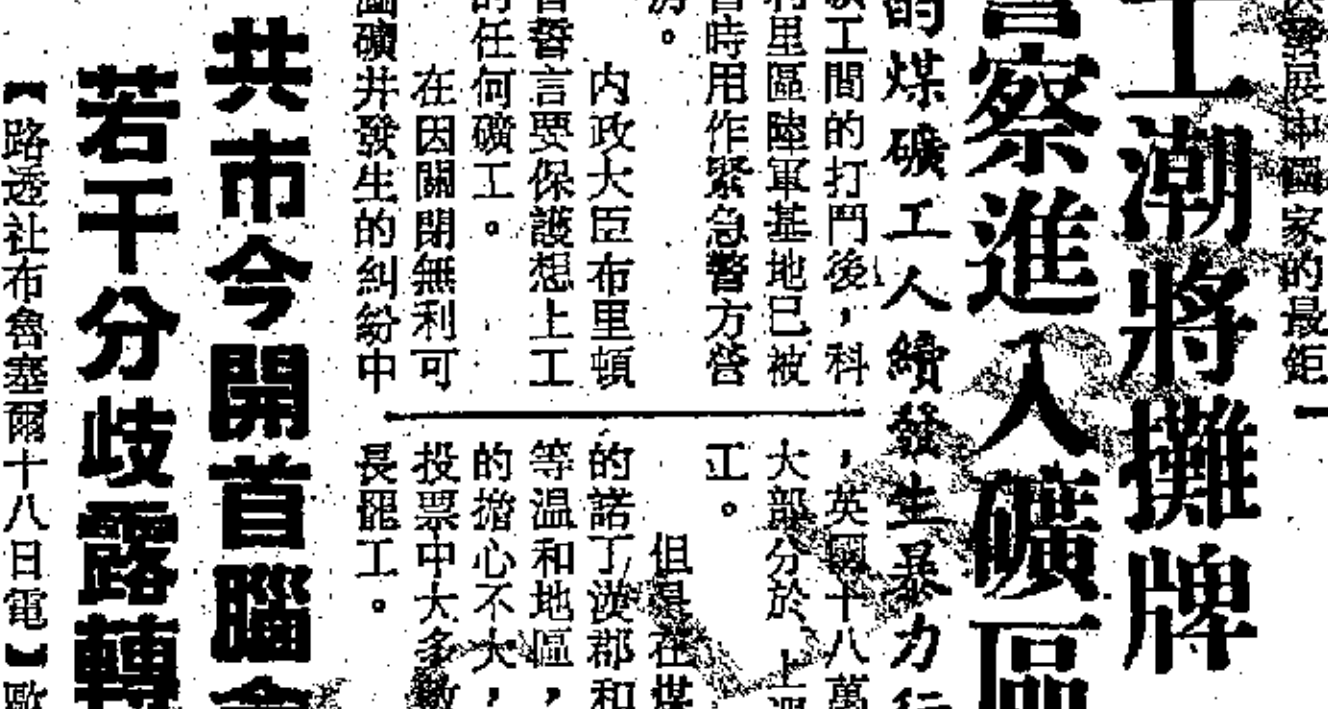 發展中國家的最鉅
工潮將攤牌
警察進入礦區
的煤礦工人續發生暴力行
礦工間的打鬥後，科
利里區陸軍基地已被
暫時用作緊急警方營
房。
內政大臣布里頓
誓言要保護想上工
的任何礦工。
在因關閉無利可
圖礦井發生的糾紛中
，英國十八萬
大部分於
工。
但是在煤
的諾丁漢郡和
等温和地區，
的擔心不大，
投票中大多數
長罷工。
共市今開首腦會
若干分歧露轉
【路透社布魯塞爾十八日電】歐